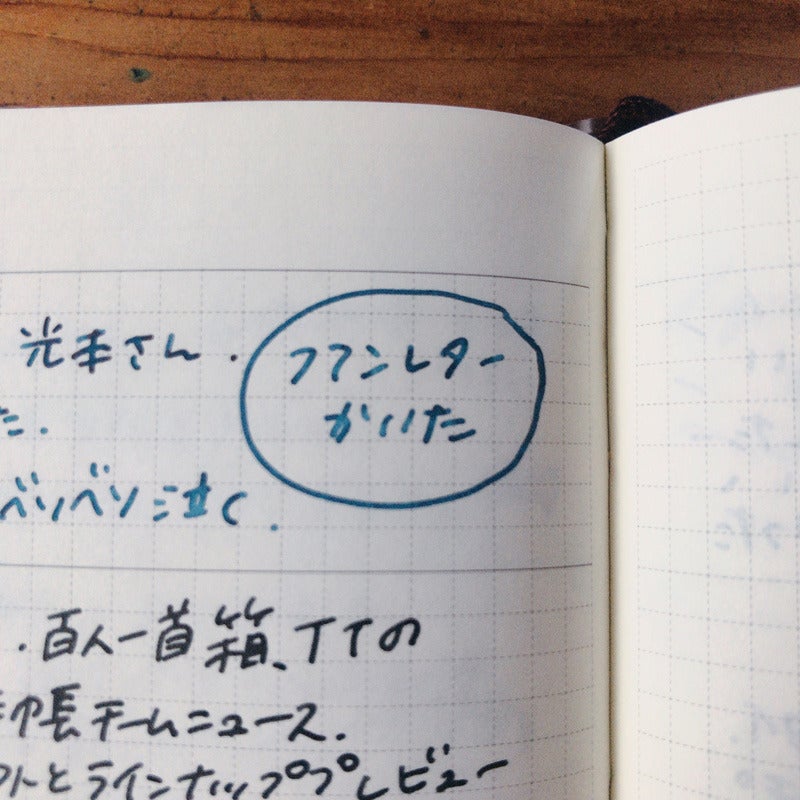 光本さん.
ファンレター
かいた
た.
ベソベソ泣く.
.百人一首箱、TTの
手帳チームニュース.
フトとラインナッププレビュー